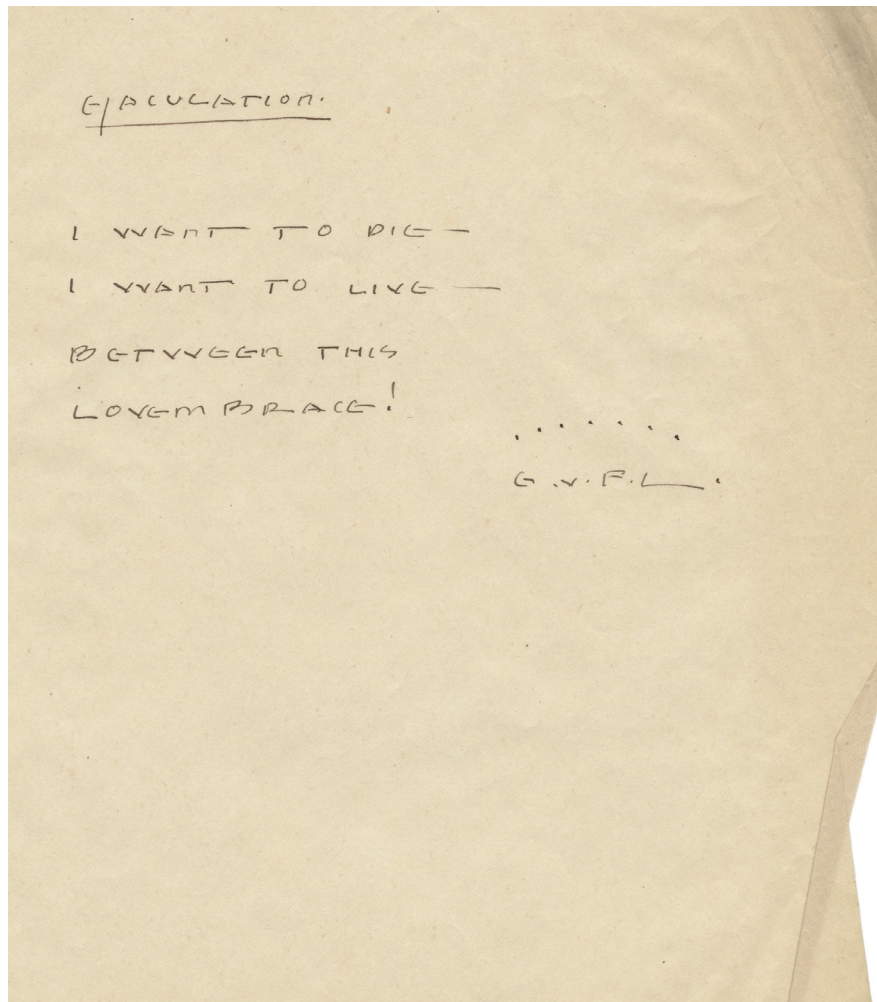 EJACULATION.
I WANT TO DIE —
I WANT TO LIVE —
BETWEEN THIS
LOVEMBRACE!
.......
E.v.F.L.